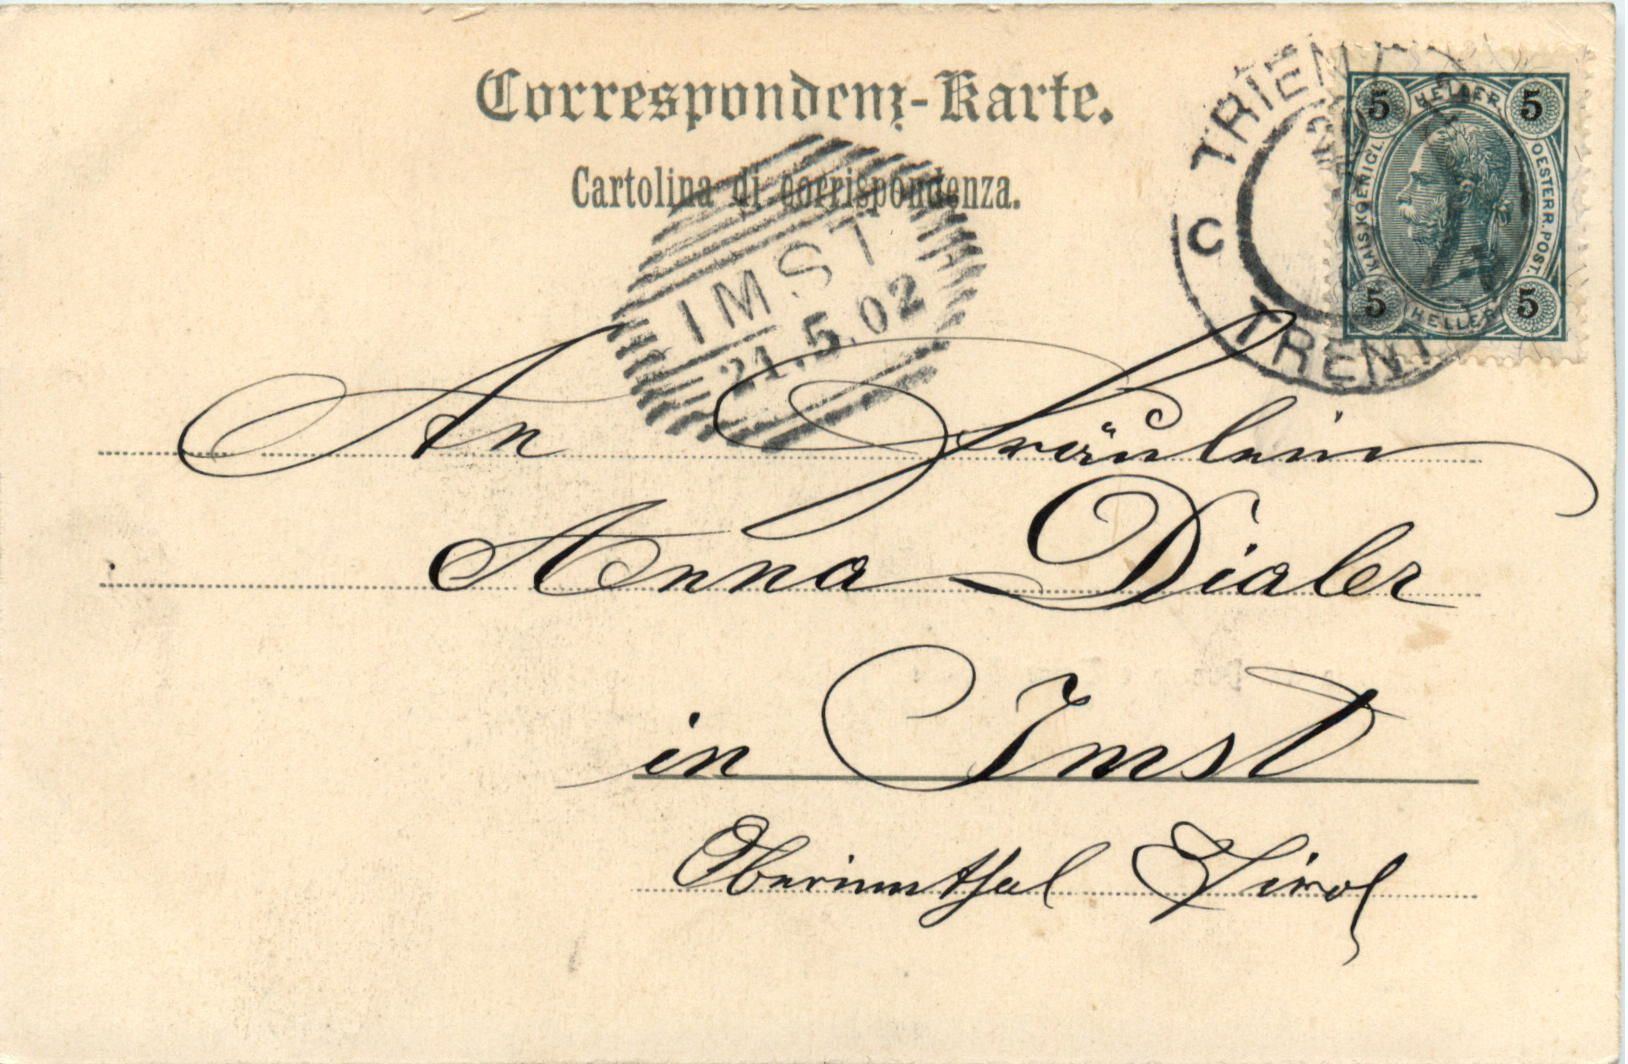 Correspondenz-Karte.
Cartolina di corrispondenza.
TRIENT
C
TRENTO
5 HELLER 5
KAIS. KOENIGL.
OESTERR. POST.
5 HELLER 5
IMST
21.5.02
An Fräulein
Anna Dialer
in Imst
Oberinnthal Tirol